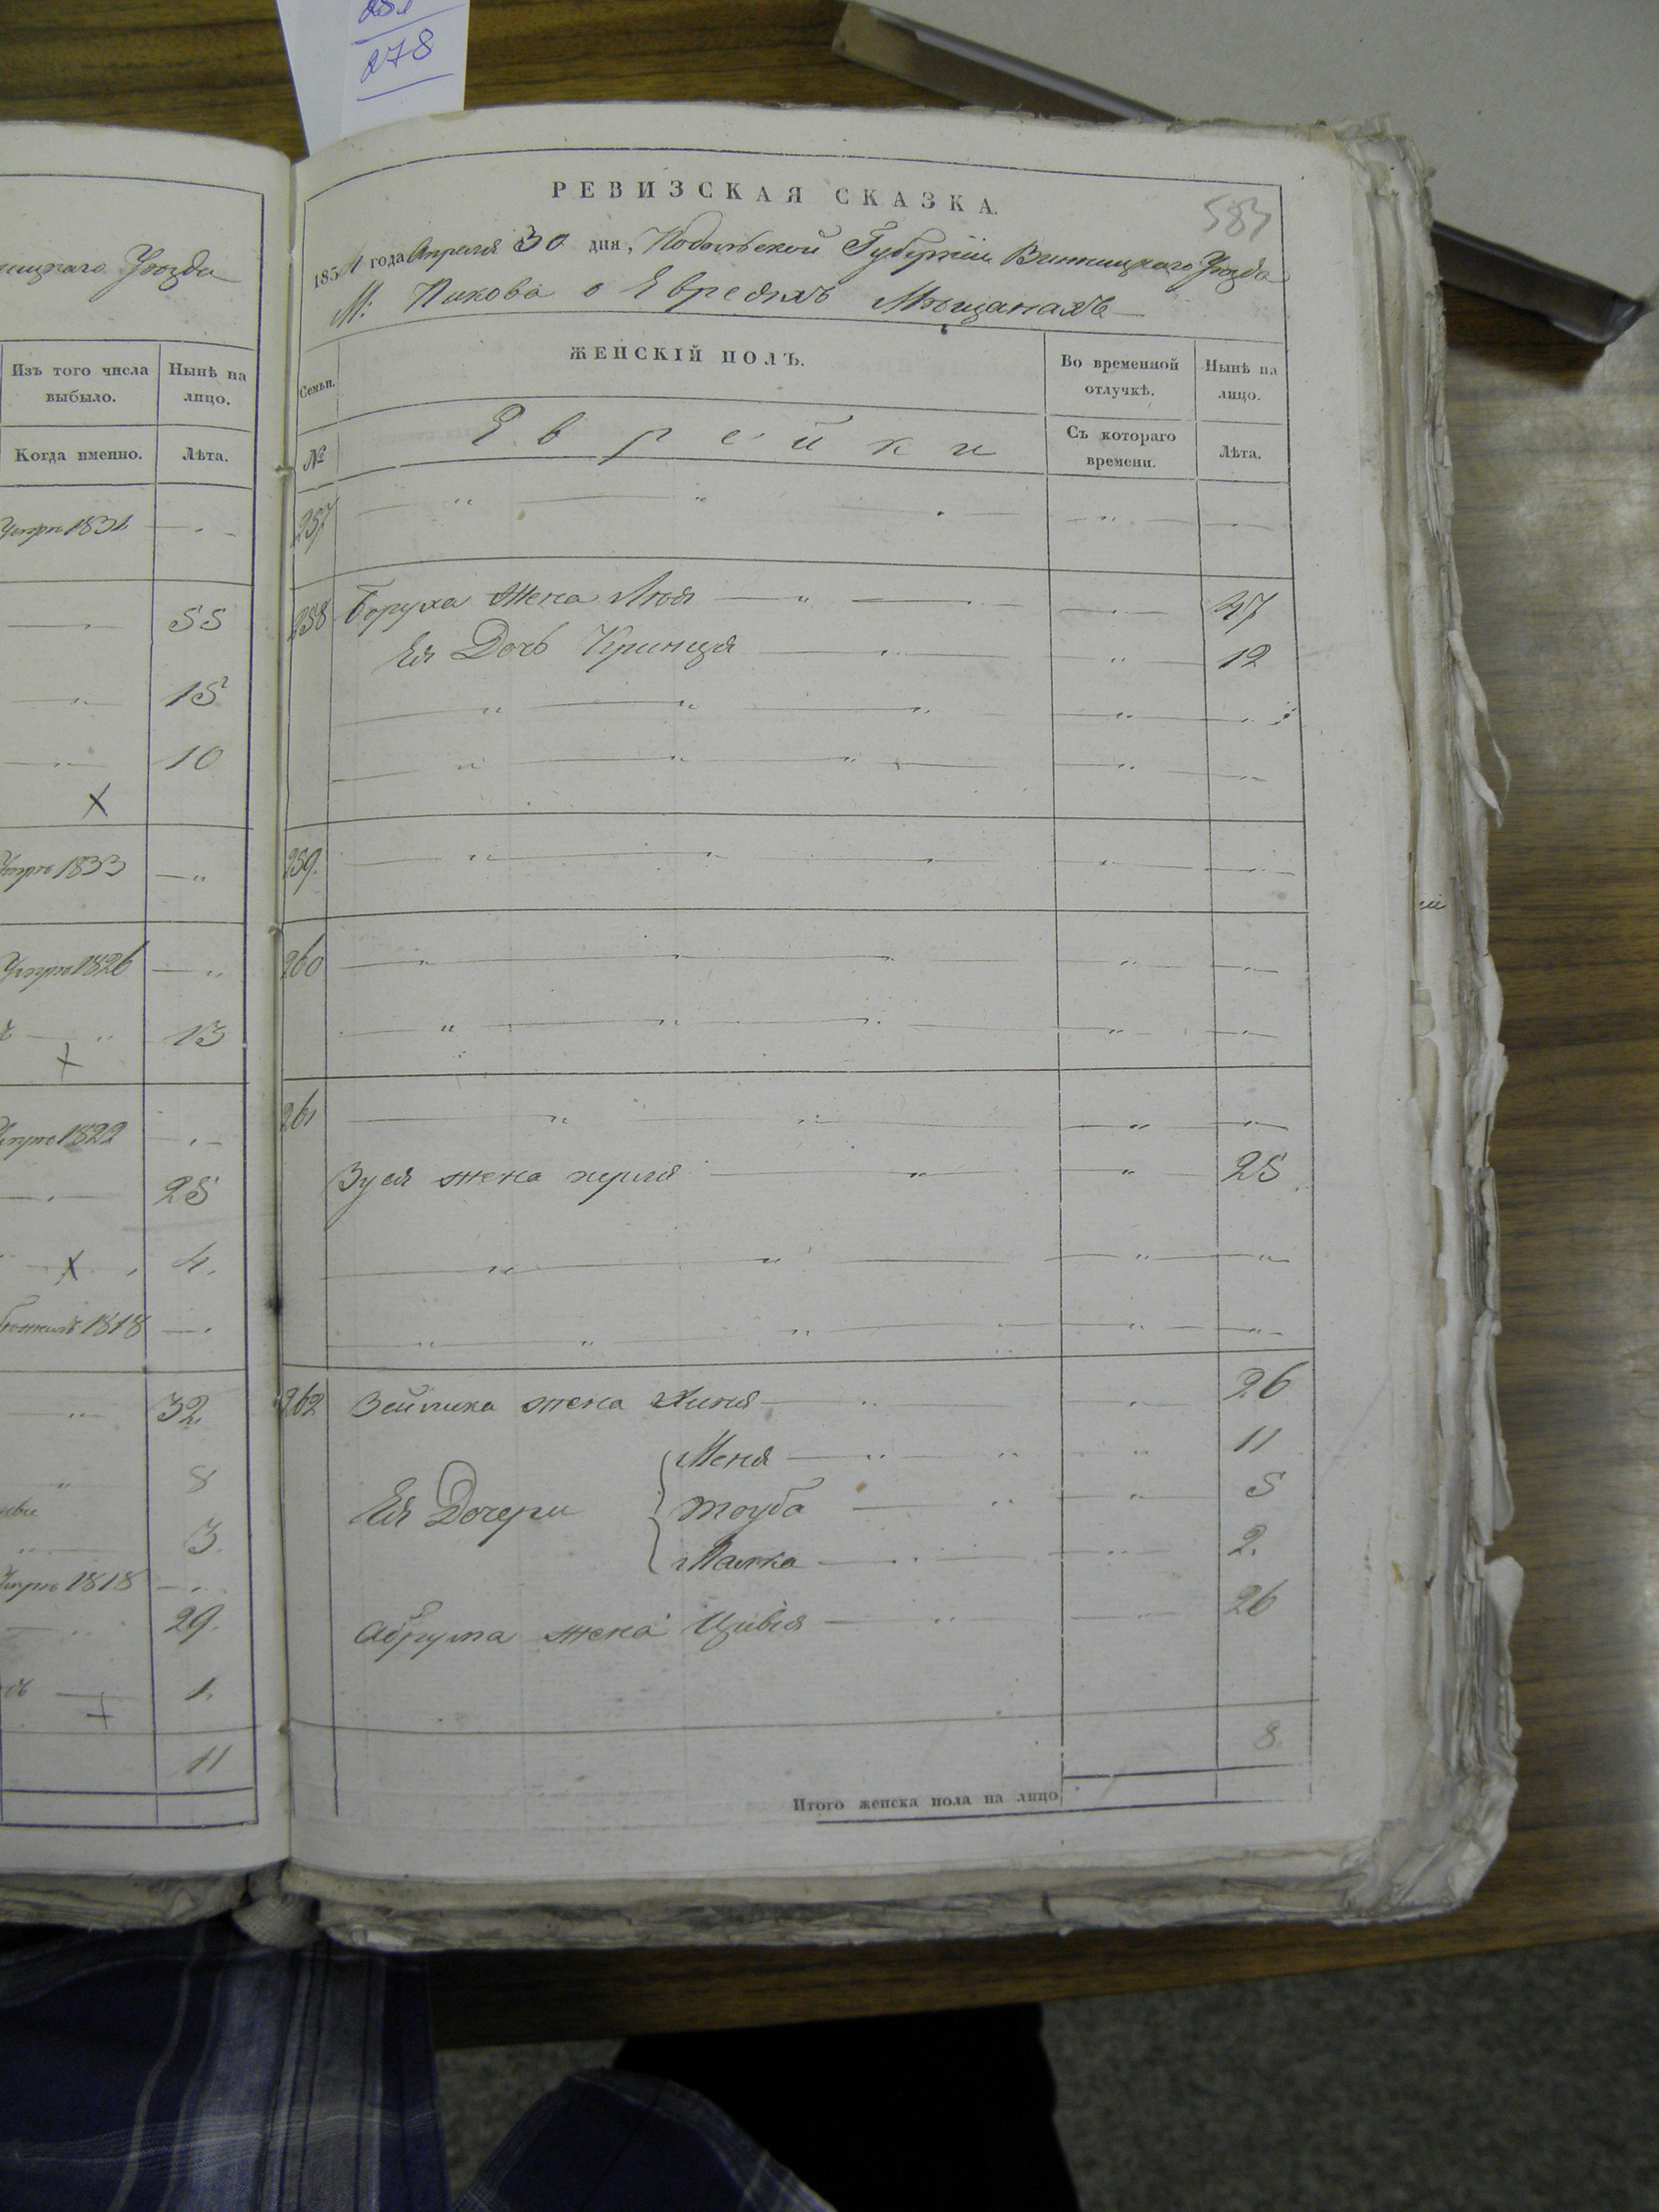 278
ицкаго Уѣзда
Изъ того числа выбыло.
Нынѣ на лицо.
Когда именно.
Лѣта.
1831
55
15
10
х
1833
1826
13
х
1822
25
х 4.
1818
32.
8
3.
1818
29.
1.
11
РЕВИЗСКАЯ СКАЗКА.
583
года Апреля 30 дня, Подольской Губерніи Винницкаго Уѣзда
М: Пикова о Евреяхъ Мѣщанахъ
Семьи.
ЖЕНСКІЙ ПОЛЪ.
Во временной отлучкѣ.
Нынѣ на лицо.
№
Еврейки
Съ котораго времени.
Лѣта.
257
258 Боруха жена 47
Ея Дочь Кринця 12
259.
260
261
Зуся жена 25
262 Зейлика жена Хиня 26
Меня 11
Ея Дочери Тоуба 5
Малка 2.
Абрума жена Цивія 26
8.
Итого женска пола на лицо